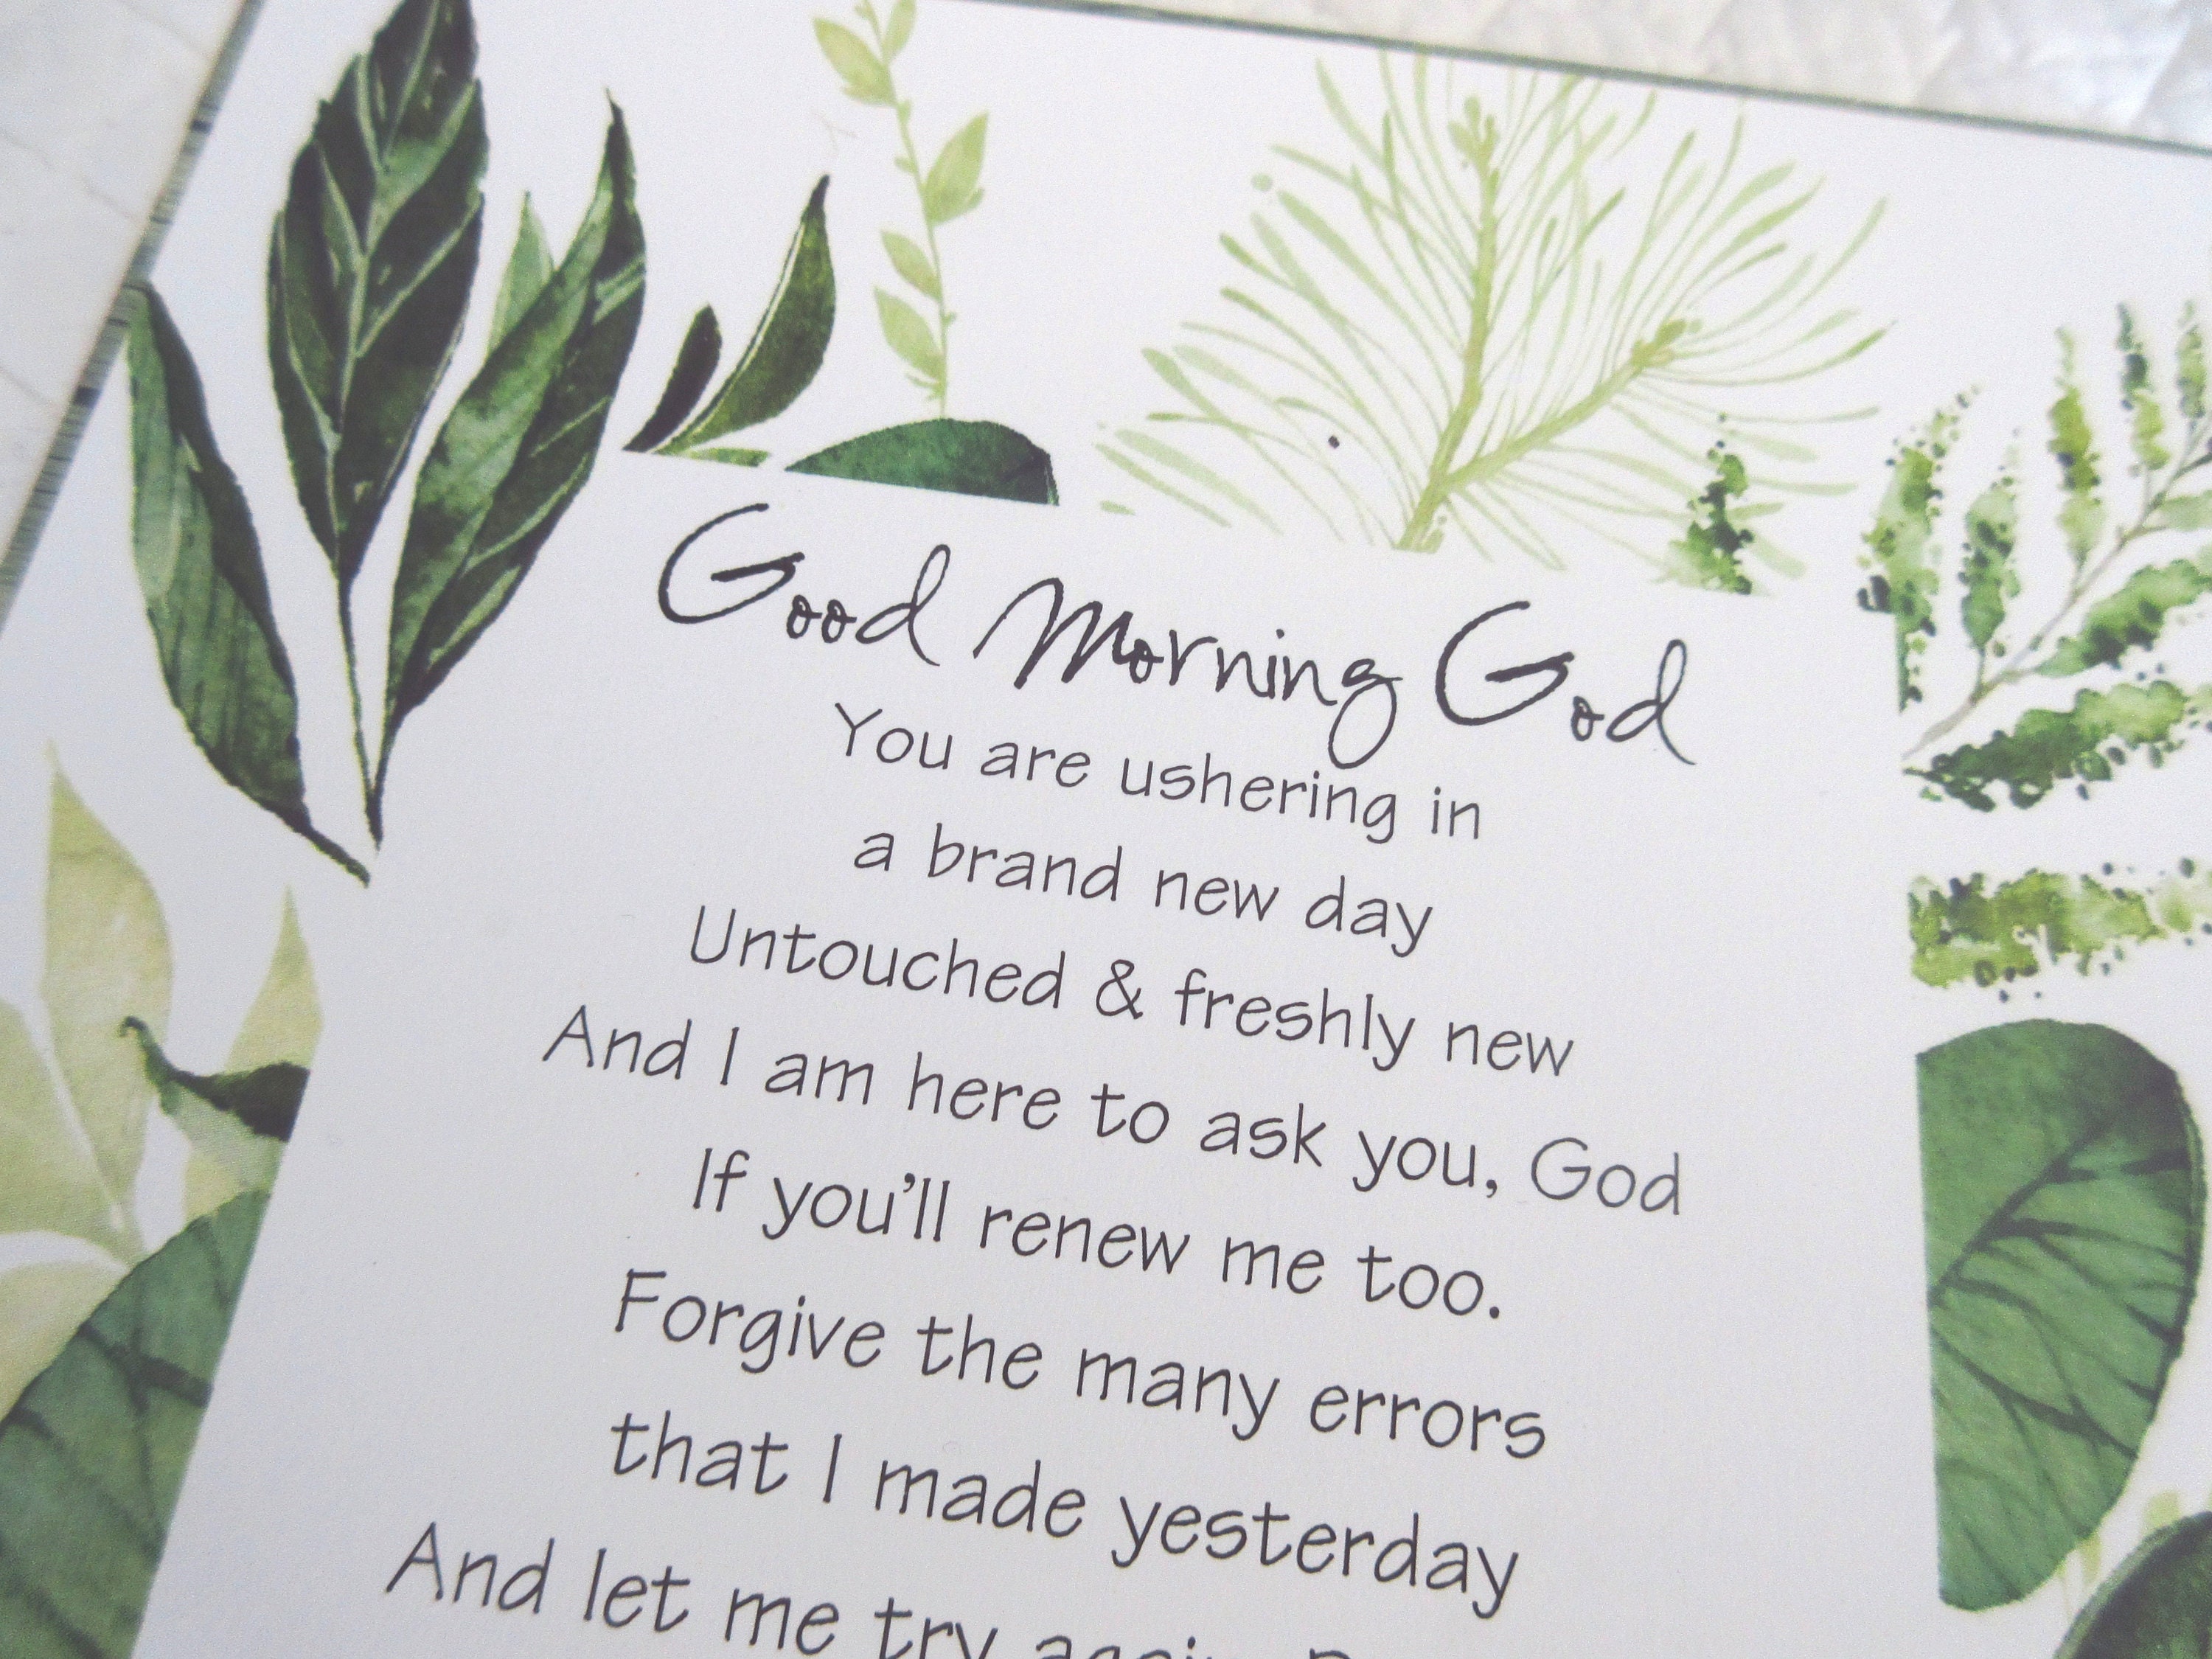 Good Morning God
You are ushering in
a brand new day
Untouched & freshly new
And I am here to ask you, God
If you'll renew me too.
Forgive the many errors
that I made yesterday
And let me try